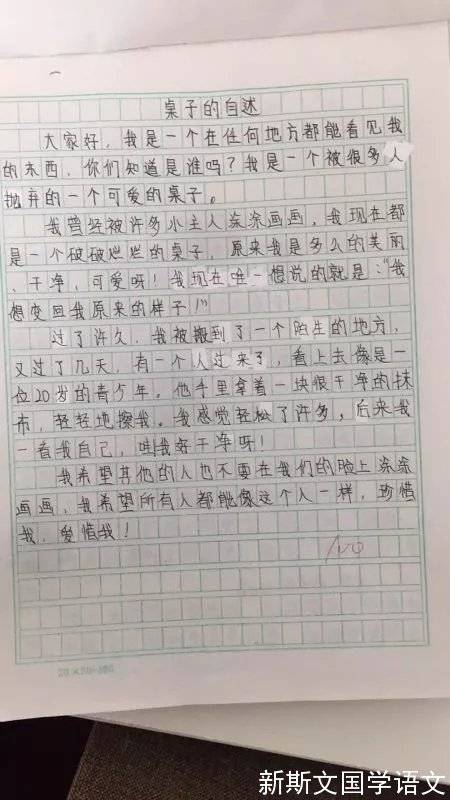 桌子的自述
大家好，我是一个在任何地方都能看见我
的东西，你们知道是谁吗？我是一个被很多人
抛弃的一个可爱的桌子。
我曾经被许多小主人涂涂画画，我现在都
是一个破破烂烂的桌子，原来我是多么的美丽
、干净，可爱呀！我现在唯一想说的就是：“我
想变回我原来的样子！”
过了许久，我被搬到了一个陌生的地方，
又过了几天，有一个人过来了，看上去像是一
位20岁的青少年。他手里拿着一块很干净的抹
布，轻轻地擦我。我感觉轻松了许多，后来我
一看我自己，哇我好干净呀！
我希望其他的人也不要在我们的脸上涂涂
画画，我希望所有人都能像这个人一样，珍惜
我，爱惜我！
100
新斯文国学语文